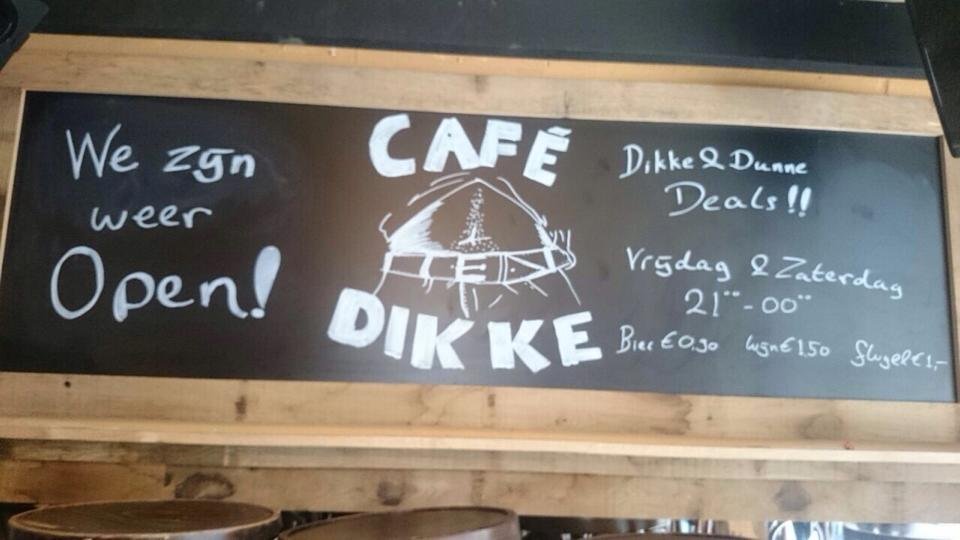 We zijn
weer
Open!
CAFÉ
DIKKE
Dikke & Dunne
Deals!!
Vrijdag & Zaterdag
21°° - 00°°
Bier €0,90 wijn €1,50 flugel €1,-